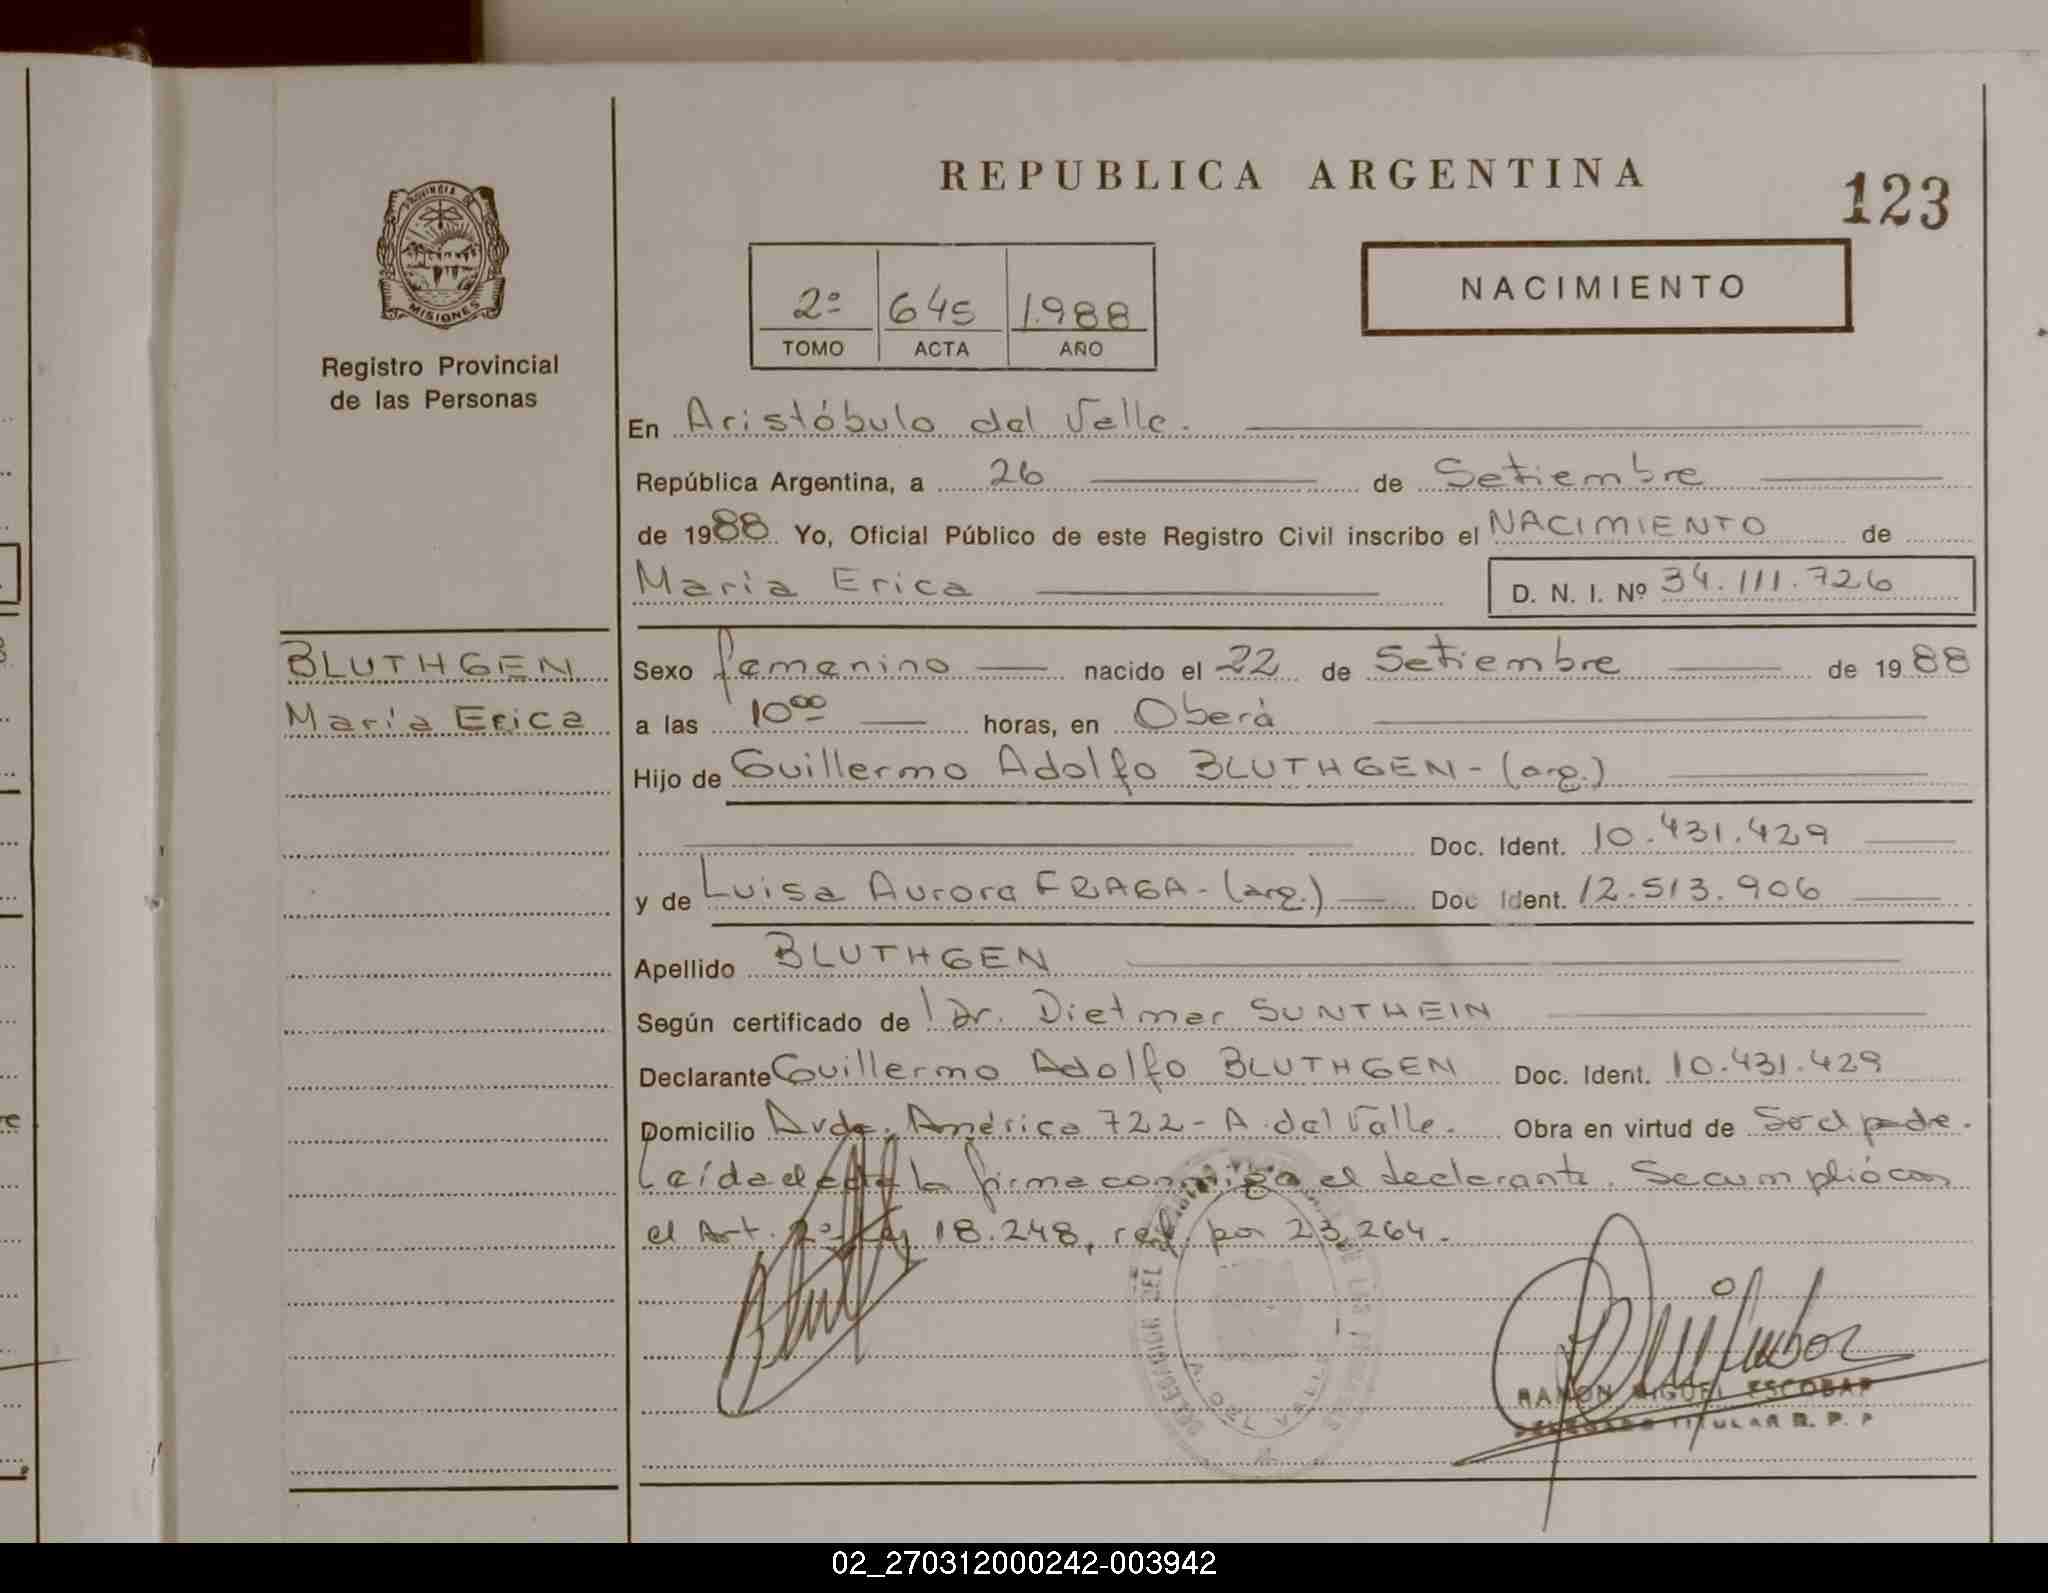 PROVINCIA DE
MISIONES
Registro Provincial
de las Personas
BLUTHGEN
María Erica
REPUBLICA ARGENTINA
123
NACIMIENTO
2º 645 1.988
TOMO ACTA AÑO
En Aristóbulo del Valle.
República Argentina, a 26 de Setiembre
de 1988 Yo, Oficial Público de este Registro Civil inscribo el NACIMIENTO de
María Erica D. N. I. Nº 34.111.726
Sexo femenino nacido el 22 de Setiembre de 1988
a las 10⁰⁰ horas, en Oberá
Hijo de Guillermo Adolfo BLUTHGEN - (arg.)
Doc. Ident. 10.431.429
y de Luisa Aurora FRAGA - (arg.) Doc Ident. 12.513.906
Apellido BLUTHGEN
Según certificado de Dr. Dietmar SUNTHEIN
Declarante Guillermo Adolfo BLUTHGEN Doc. Ident. 10.431.429
Domicilio Avda. América 722 - A. del Valle. Obra en virtud de Ser el padre.
Leída el acta la firma conmigo el declarante. Se cumplió con
el Art. 2º Ley 18.248, ref. por 23.264.
DELEGACION DEL DE LAS
A. DEL VALLE
RAMON MIGUEL ESCOBAR
DELEGADO TITULAR R. P. P
02_270312000242-003942